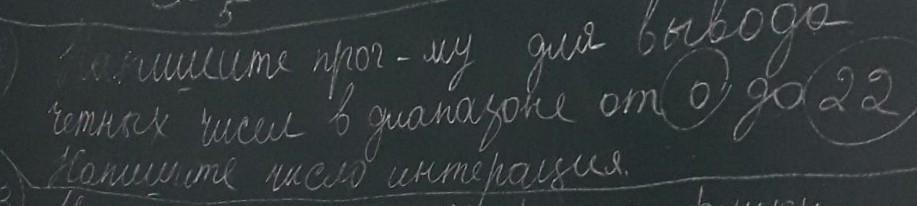 5
Напишите прог-му для вывода
четных чисел в диапазоне от 0 до 22
Напишите число интерация.